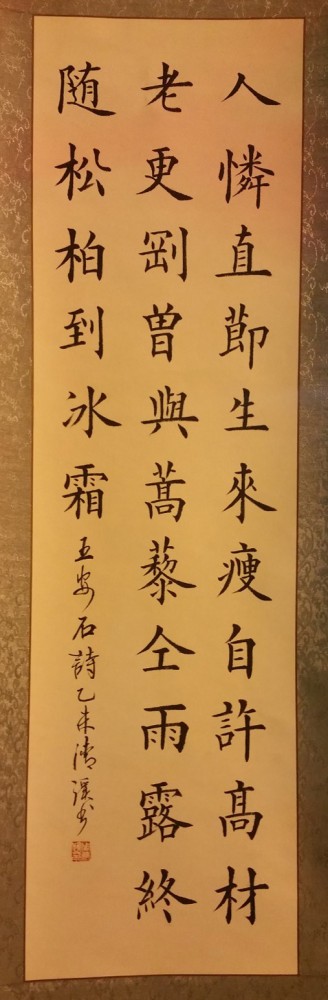 人憐直莭生來瘦自許髙材
老更㓻曾與蒿藜仝雨露終
随松柏到冰霜
王安石詩乙未清书